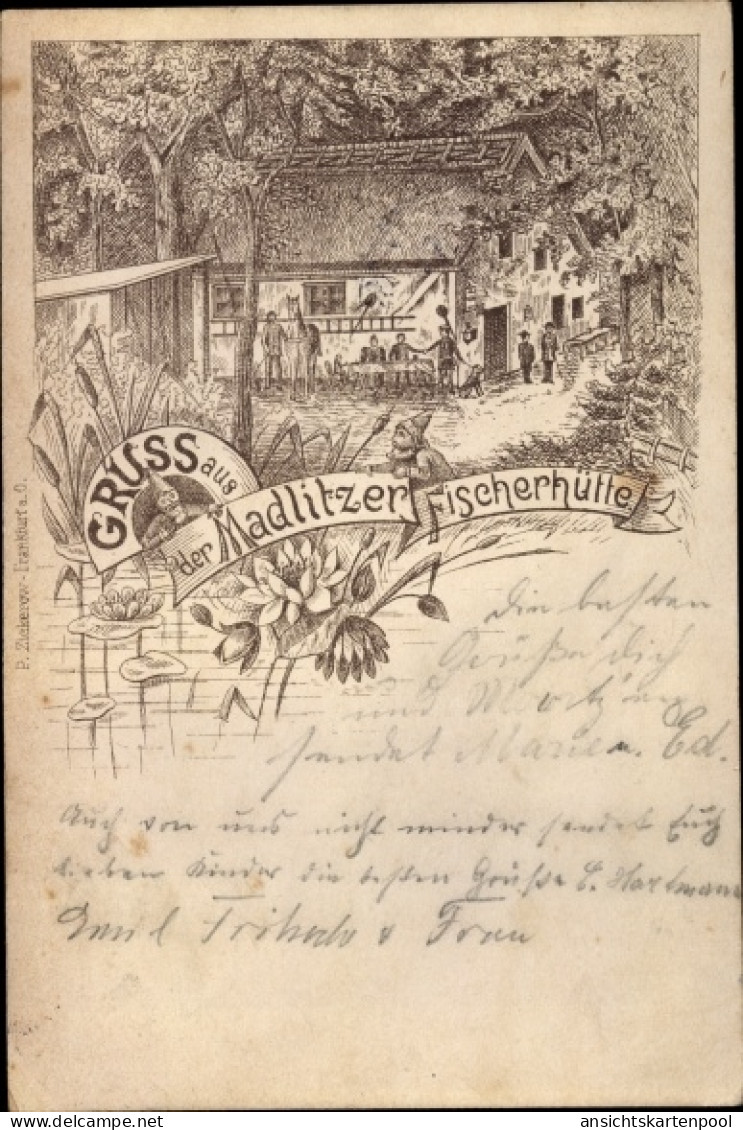 GRUSS aus
der Madlitzer Fischerhütte
P. Zuckerow - Frankfurt a. O.
Die besten
Grüße Dich
und Moritz
sendet Marie u. Ed.
Auch von uns nicht minder sendet Euch
lieben Kinder die besten Grüße E. Hartmann
Emil & Frau
the-collection.com
ansichtskartenpool